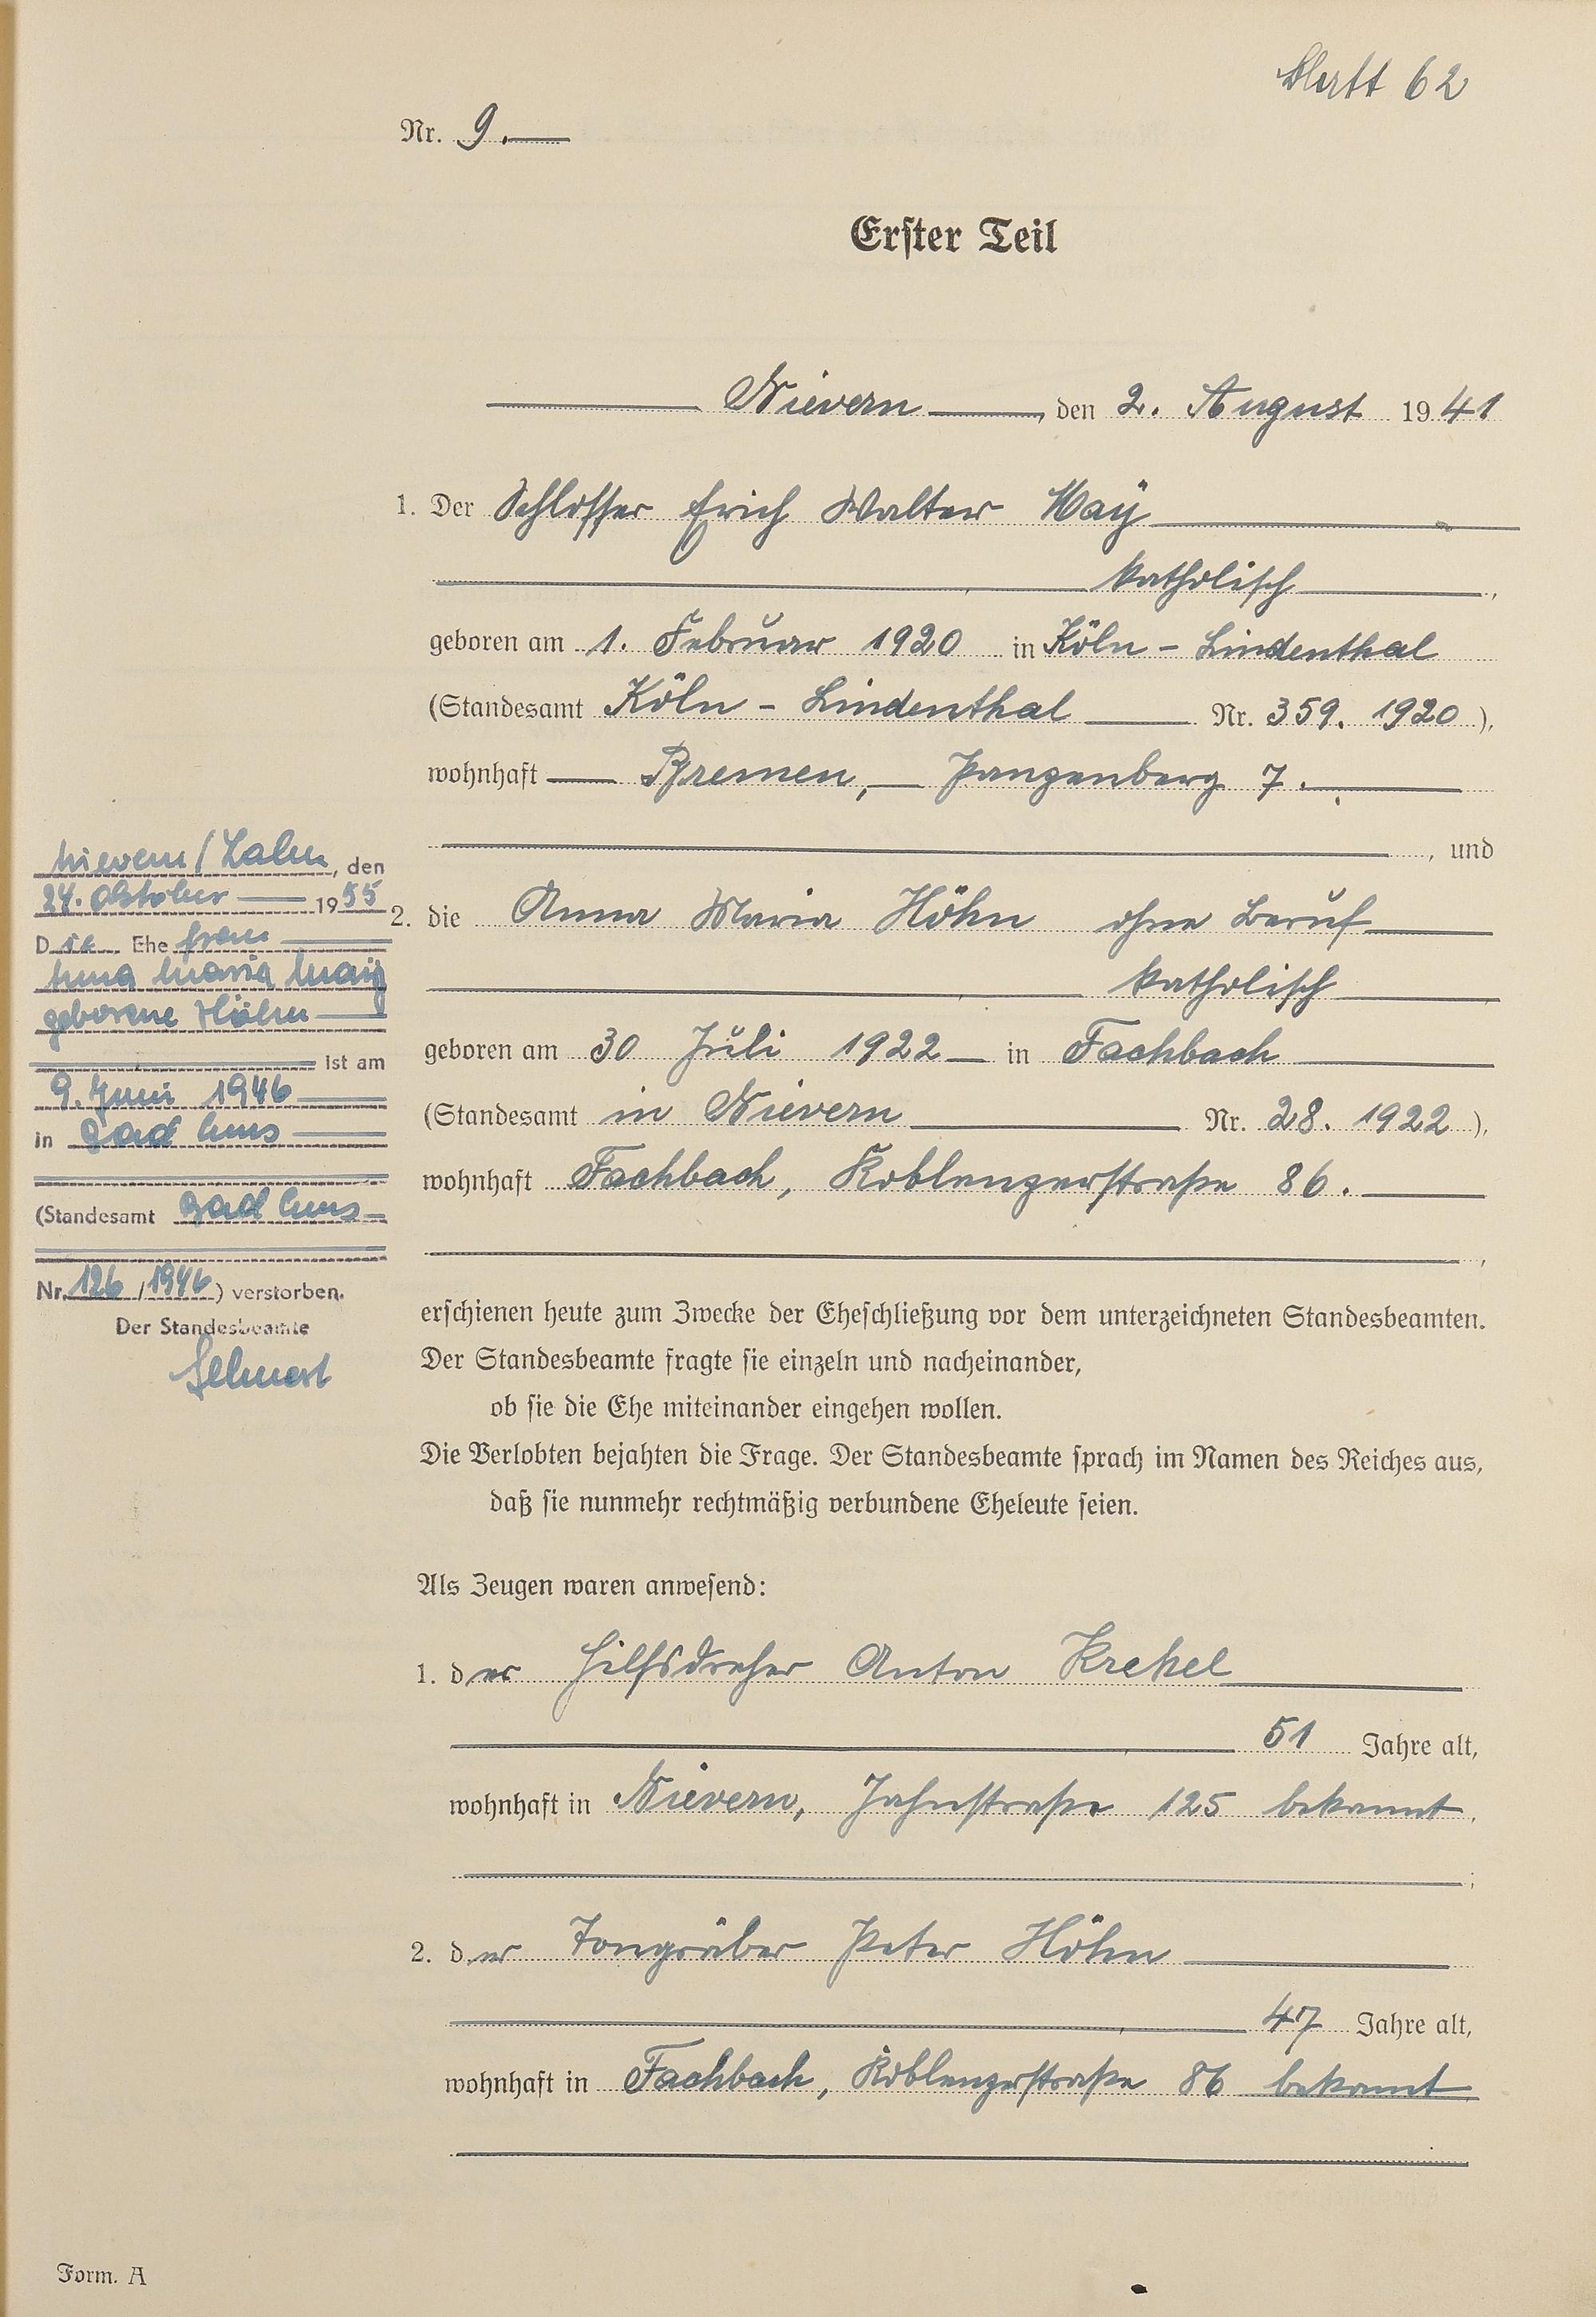 Blatt 62
Nr. 9.
Erster Teil
Nievern, den 2. August 1941
1. Der Schlosser Erich Walter Maÿ
katholisch,
geboren am 1. Februar 1920 in Köln - Lindenthal
(Standesamt Köln - Lindenthal Nr. 359. 1920),
wohnhaft Bremen, Panzenberg 7.
, und
2. die Anna Maria Höhn ohne Beruf
katholisch
geboren am 30 Juli 1922 in Fachbach
(Standesamt in Nievern Nr. 28. 1922),
wohnhaft Fachbach, Koblenzerstraße 86.
,
erschienen heute zum Zwecke der Eheschließung vor dem unterzeichneten Standesbeamten.
Der Standesbeamte fragte sie einzeln und nacheinander,
ob sie die Ehe miteinander eingehen wollen.
Die Verlobten bejahten die Frage. Der Standesbeamte sprach im Namen des Reiches aus,
daß sie nunmehr rechtmäßig verbundene Eheleute seien.
Als Zeugen waren anwesend:
1. der Hilfsdreher Anton Krekel
51 Jahre alt,
wohnhaft in Nievern, Jahnstraße 125 bekannt,
;
2. der Tongräber Peter Höhn
47 Jahre alt,
wohnhaft in Fachbach, Koblenzerstraße 86 bekannt
Nievern / Lahn, den
24. Oktober 1955
Die Ehefrau
Anna Maria Maÿ
geborene Höhn
ist am
9. Juni 1946
in Bad Ems
(Standesamt Bad Ems
Nr. 126 / 1946) verstorben.
Der Standesbeamte
Form. A